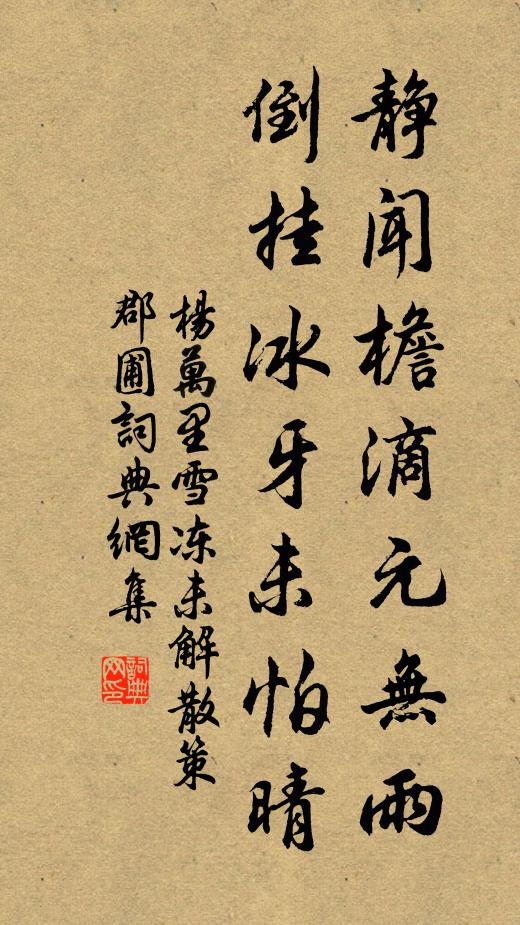 静闻檐滴元無雨
倒挂冰牙未怕晴
楊萬里雪冻未解散策
郡圃詞典網集
詞典网印